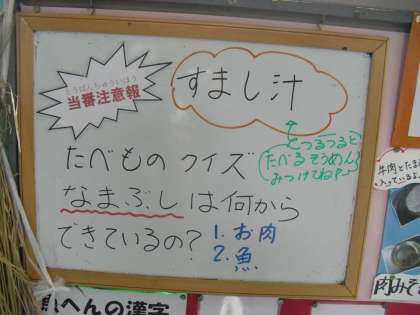 とうばんちゅういほう
当番注意報
すまし汁
とつるつると
たべるそうめん
みつけてね?
たべものクイズ
なまぶしは何から
できているの?
1. お肉
2. 魚
牛肉とたま
入っているよ
肉みそ
へんの漢字